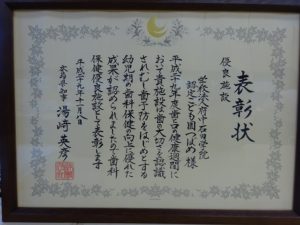 表彰状
優良施設
学校法人府中石田学院
認定こども園つばめ 様
平成二十九年度歯と口の健康週間に
おいて貴施設は歯の大切さを認識
されむし歯予防をはじめとする
幼児期の歯科保健の向上に優れた
成果が認められましたので歯科
保健優良施設として表彰します
平成二十九年十一月八日
広島県知事 湯﨑英彦